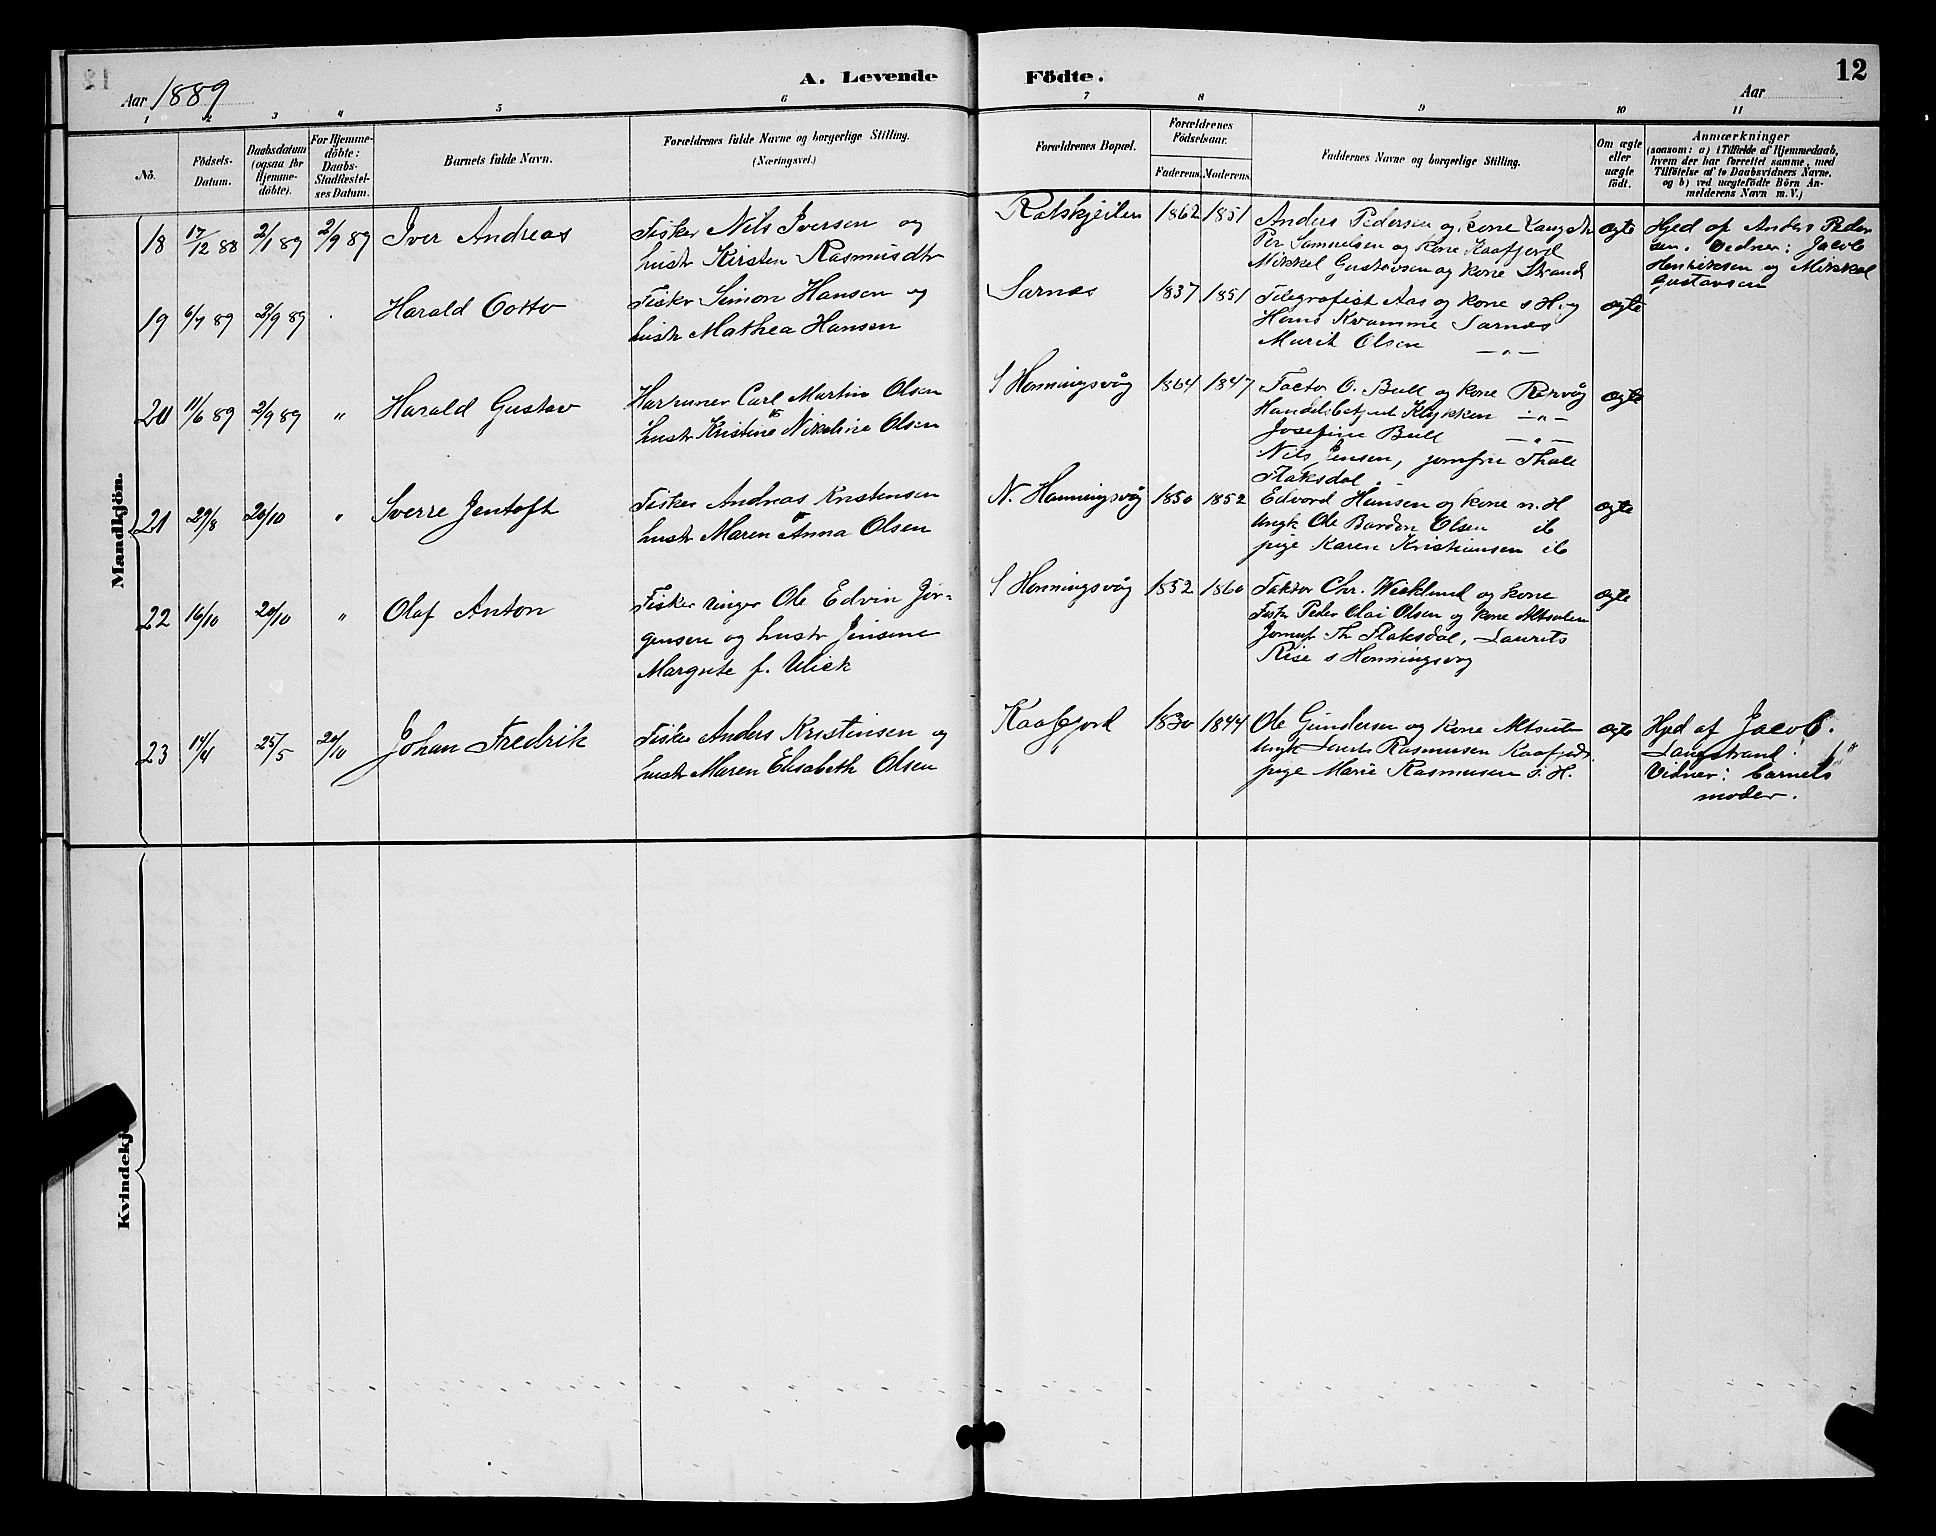 A. Levende Födte.
12
Aar 1889
Aar
1 2 3 4 5 6 7 8 9 10 11
No.
Födsels-
Datum.
Daabsdatum
(ogsaa for
Hjemme-
döbte).
For Hjemme-
döbte:
Daabs-
Stadfæstel-
ses Datum.
Barnets fulde Navn.
Forældrenes fulde Navne og borgerlige Stilling.
(Næringsvei.)
Forældrenes Bopæl.
Forældrenes
Födselsaar.
Faderens. Moderens.
Faddernes Navne og borgerlige Stilling.
Om ægte
eller
uægte
født.
Anmærkninger
(saasom: a) i Tilfælde af Hjemmedaab,
hvem der har forrettet samme, med
Tilföielse af to Daabsvidners Navne.
og b) ved uægtefödte Börn An-
melderens Navn m. V.)
Mandkjön.
18 17/12 88 2/1 89 2/9 89 Iver Andreas
Fisker Nils Iversen og
hustr Kirsten Rasmusdtr
1862 1851
Anders Pedersen og kone
Per Samuelsen og kone Kaafjord
Mikkel Gustavsen og kone Strand
ægte
Hjed af Anders Peder
sen. Vidner: Jacob
Henriksen og Mikkel
Gustavsen
19 6/7 89 2/9 89 Harald Ootto
Fisker Simon Hansen og
hustr Mathea Hansen
Sarnes 1837 1851
Telegrafist Aas og kone s H. og
Hans Kvamme Sarnes
Marit Olsen —„—
ægte
20 11/6 89 2/9 89 „ Harald Gustav
Carl Martin Olsen
hustr Kristine Nikoline Olsen
S Honningsvåg 1864 1847
Factor O. Bull og kone
Klykken —„—
Josefine Bull —„—
Nils Jensen, jomfru Thale
Flaksdal.
ægte
21 29/8 20/10 „ Sverre Jentoft
Fisker Andreas Kristensen
hustr Maren Anna Olsen
N. Honningsvåg 1850 1852
Edvard Hansen og kone n. H
Ungk Ole Bardon Olsen ib
pige Karen Kristiansen ib
ægte
22 16/10 20/10 „ Olaf Anton
Fisker ringer Ole Edvin Jör-
gensen og hustr Jensine
Margrete f. Wick
S Honningsvåg 1852 1860
Faktor Chr. Wicklund og kone
Fisk Peder Olai Olsen og kone
Jomf Th Flaksdal, Laurits
Rise s Honningsvog
ægte
23 14/4 25/5 20/10 Johan Fredrik
Fisker Anders Kristensen og
hustr Maren Elisabeth Olsen
Kaafjord 1830 1844
Ole Gundersen og kone
Ungk Rasmussen Kaafjord
pige Marie Rasmussen
ægte
Hjd af Jacob.
Langstrand
Vidner: barnets
moder.
Kvindekj